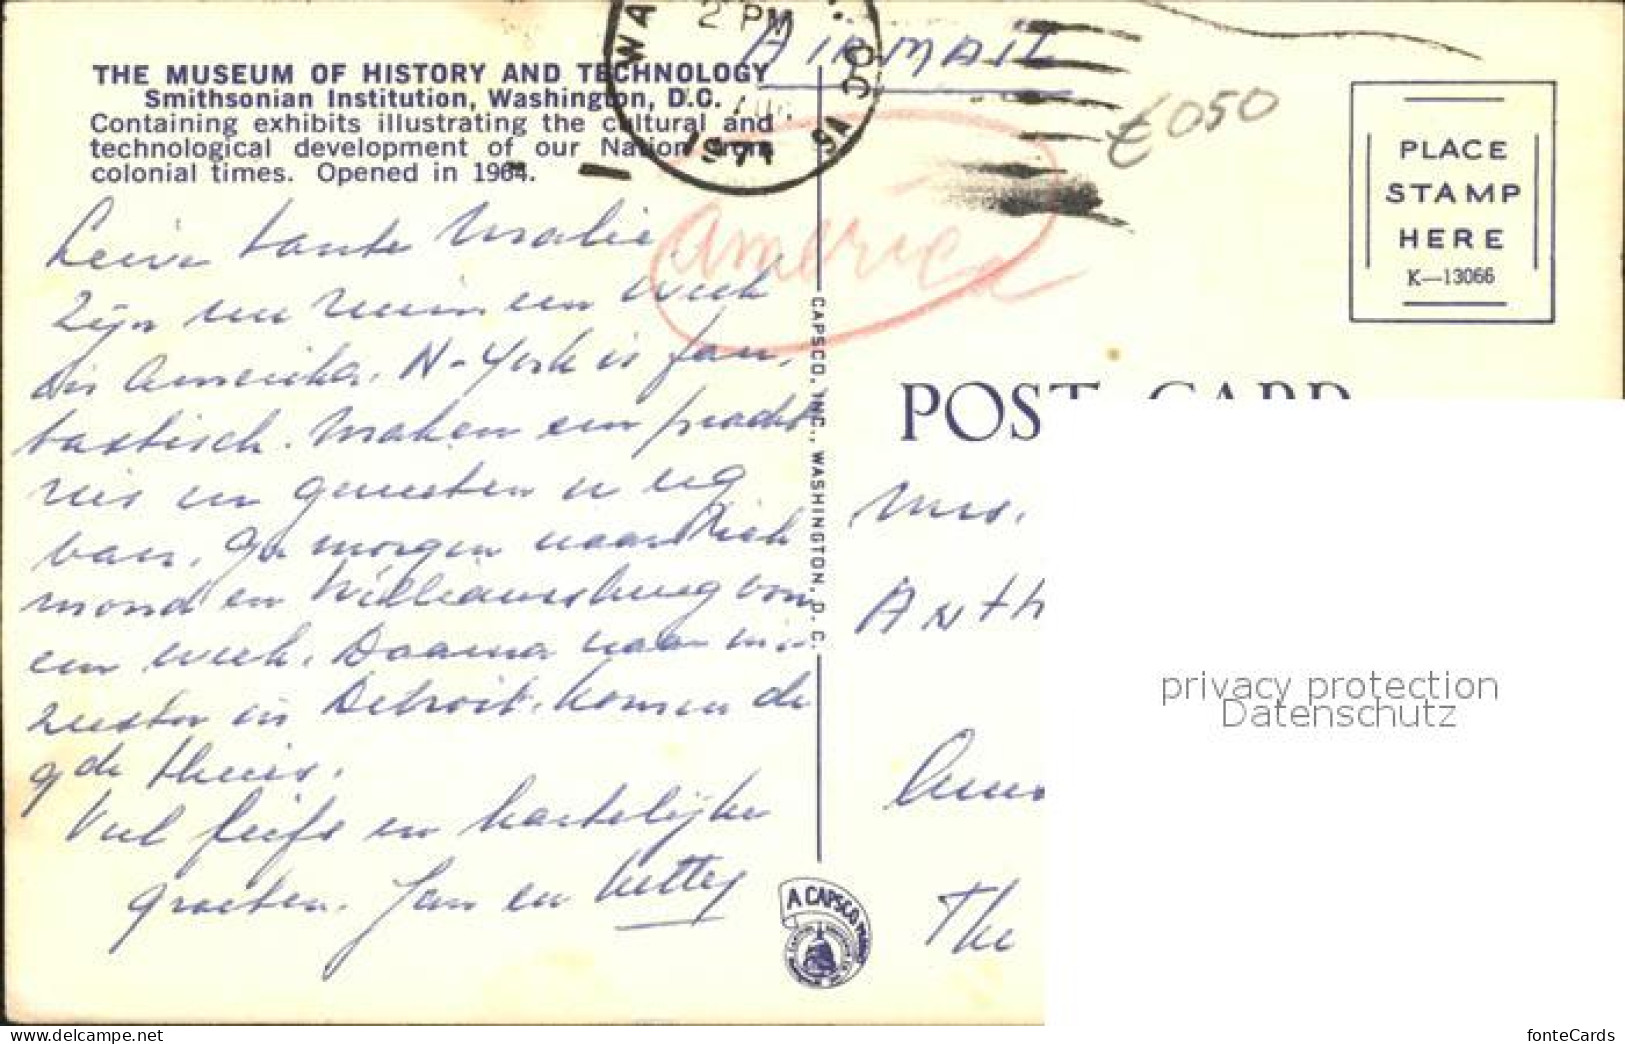 THE MUSEUM OF HISTORY AND TECHNOLOGY
Smithsonian Institution, Washington, D.C.
Containing exhibits illustrating the cultural and
technological development of our Nation from
colonial times. Opened in 1964.
WA
2 PM
1971
AIRMAIL
€050
America
PLACE
STAMP
HERE
K—13066
POST CARD
CAPSCO, INC., WASHINGTON, D. C.
Lieve tante Malie
Zijn nu ruim een week
in Amerika. N-York is fan-
tastisch. Maken een pracht
reis en genieten er erg
van. Ga morgen naar Rich
mond en Williamsburg voor
een week. Daarna naar mijn
zuster in Detroit. Komen de
9de thuis.
Veel liefs en hartelijke
groeten. Jan en Netty
Mrs.
Anth
Ams
The
A CAPSCO PRODUCT
privacy protection
Datenschutz
https://www.delcampe.net
fonteCards